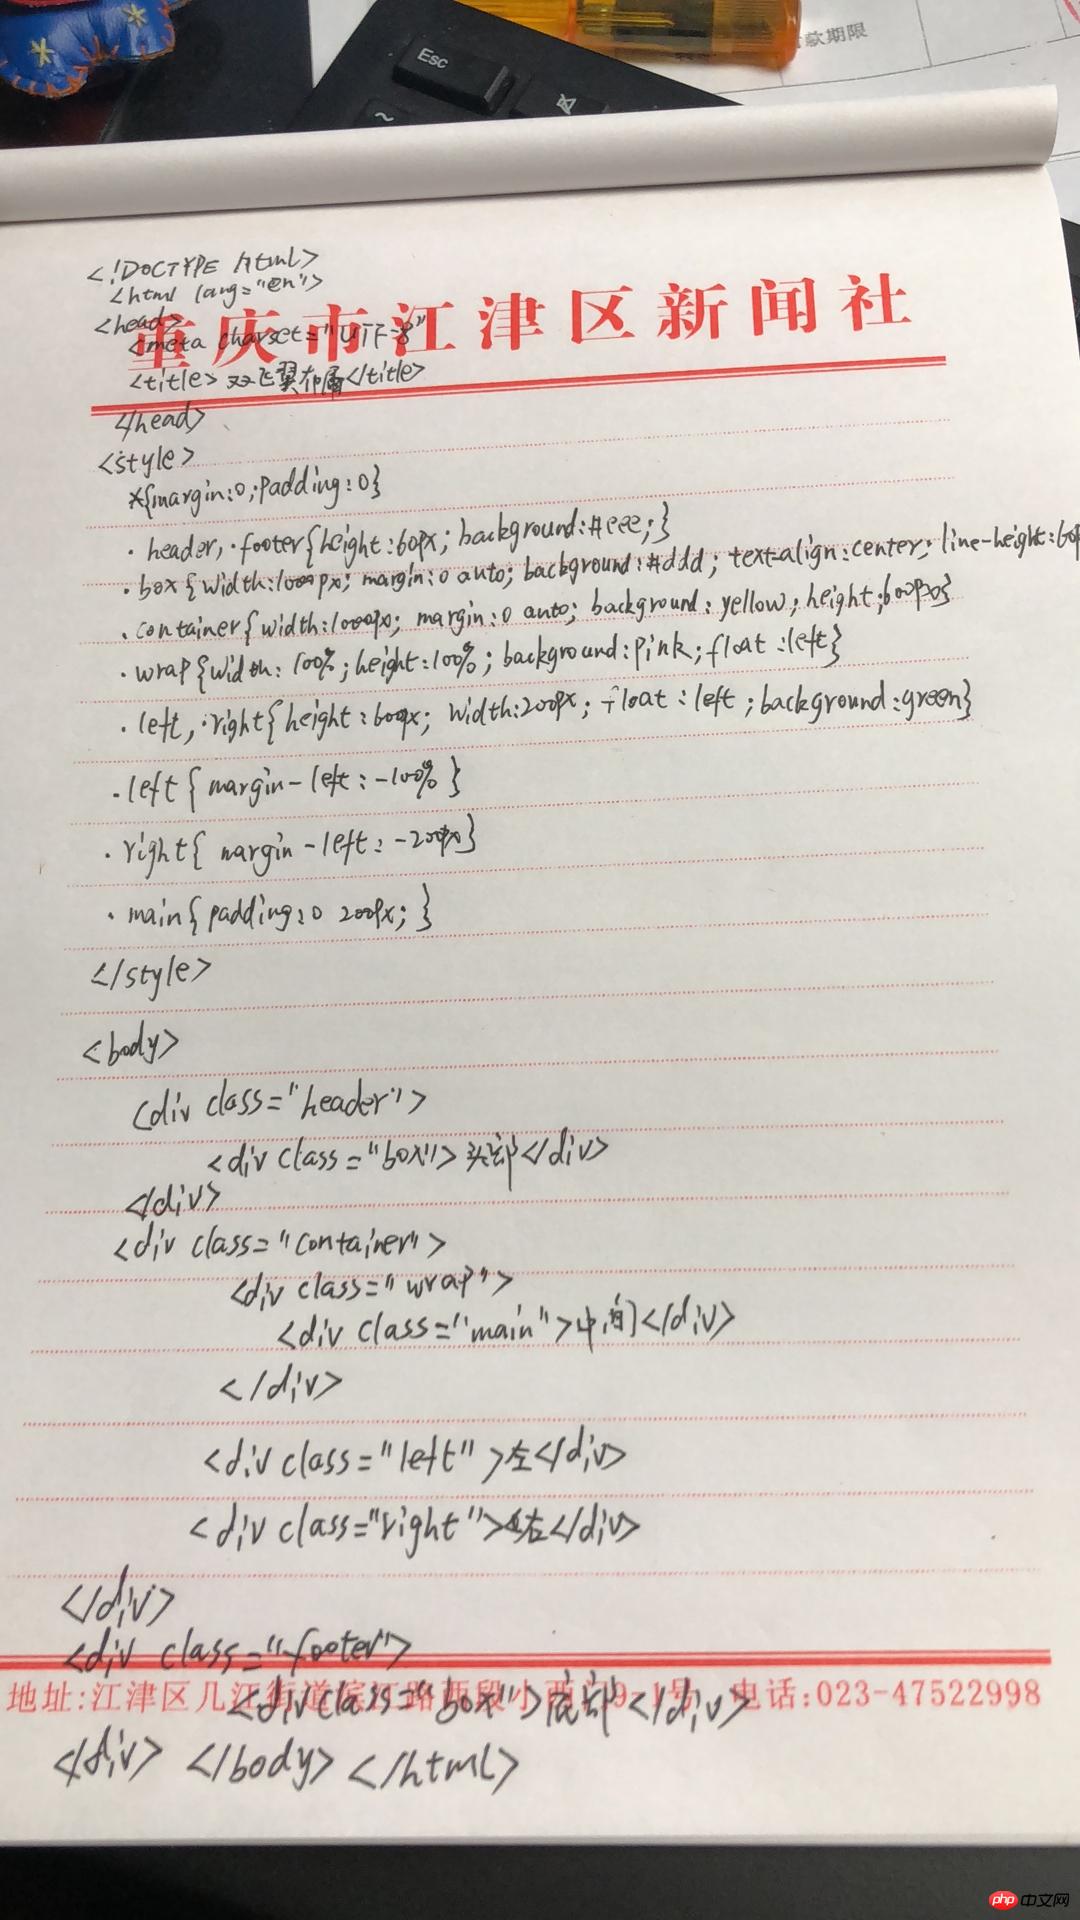 Esc
~
款期限
<!DOCTYPE html>
<html lang="en">
<head>
重庆市江津区新闻社
<meta charset="UTF-8"
<title>双飞翼布局</title>
</head>
<style>
*{margin:0;padding:0}
.header,.footer{height:60px;background:#eee;}
.box{width:1000px;margin:0 auto;background:#ddd;text-align:center;line-height:60p
.container{width:1000px;margin:0 auto;background:yellow;height:600px}
.wrap{width:100%;height:100%;background:pink;float:left}
.left,.right{height:600px;width:200px;float:left;background:green}
.left{margin-left:-100%}
.right{margin-left:-200px}
.main{padding:0 200px;}
</style>
<body>
<div class="header">
<div class="box">头部</div>
</div>
<div class="container">
<div class="wrap">
<div class="main">中间</div>
</div>
<div class="left">左</div>
<div class="right">右</div>
</div>
<div class="footer">
地址:江津区几江街道 电话:023-47522998
<div class="box">底部</div>
</div> </body> </html>
php 中文网